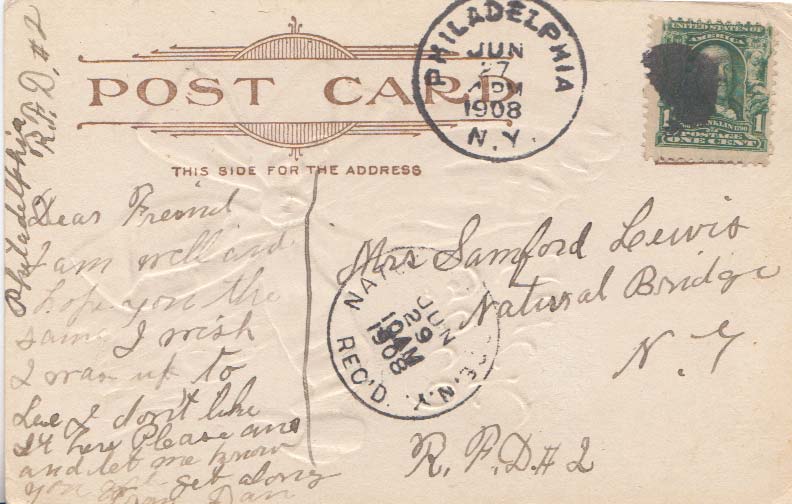 POST CARD
THIS SIDE FOR THE ADDRESS
PHILADELPHIA
JUN
27
PM
1908
N.Y.
UNITED STATES OF
AMERICA
FRANKLIN
1 POSTAGE 1
ONE CENT
Philadelphia
R. F. D. #2
Dear Freind
I am well and
hope you the
same I wish
I was up to
I don't like
it here Please ans
and let me know
you get along
Dan
Mrs Samford Lewis
Natural Bridge
N. Y
R. F. D # 2
NAT E, N.Y.
JUN
29
10 AM
1908
REC'D.